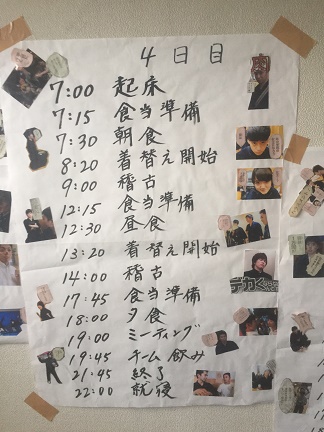 4日目
7:00 起床
7:15 食当準備
7:30 朝食
8:20 着替え開始
9:00 稽古
12:15 食当準備
12:30 昼食
13:20 着替え開始
14:00 稽古
17:45 食当準備
18:00 夕食
19:00 ミーティング
19:45 チーム飲み
21:45 終了
22:00 就寝